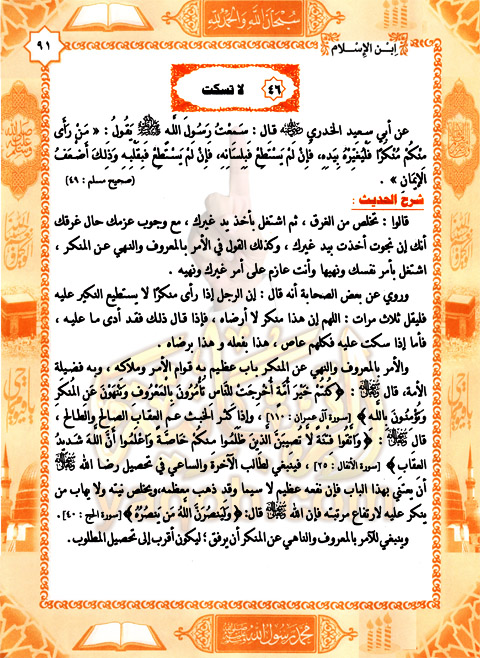 سبحان الله والحمد لله
ابن الإسلام
٩١
٤٦
لا تسكت
عن أبي سعيد الخدري ﷺ قال : سَمعْتُ رَسُولَ اللَّه ﷺ يَقُولُ : « مَنْ رَأَى
مِنْكُمْ مُنْكَرًا فَلْيُغَيِّرْهُ بِيَدِهِ، فَإِنْ لَمْ يَسْتَطِعْ فَبِلِسَانِهِ، فَإِنْ لَمْ يَسْتَطِعْ فَبِقَلْبِهِ وَذَلِكَ أَضْعَفُ
الإِيمَانِ » . (صحيح مسلم : ٤٩)
شرح الحديث :
قالوا : تخلص من الغرق ، ثم اشتغل بأخذ يد غيرك ، مع وجوب عزمك حال غرقك
أنك إن نجوت أخذت بيد غيرك ، وكذلك القول في الأمر بالمعروف والنهي عن المنكر ،
اشتغل بأمر نفسك ونهيها وأنت عازم على أمر غيرك ونهيه .
وروي عن بعض الصحابة أنه قال : إن الرجل إذا رأى منكرًا لا يستطيع النكير عليه
فليقل ثلاث مرات : اللهم إن هذا منكر لا أرضاه ، فإذا قال ذلك فقد أدى ما عليه ،
فأما إذا سكت عليه فكلهم عاص ، هذا بفعله و هذا برضاه .
والأمر بالمعروف والنهي عن المنكر باب عظيم به قوام الأمر وملاكه ، وبه فضيلة
الأمة، قال ﷺ : ﴿ كُنتُمْ خَيْرَ أُمَّةٍ أُخْرِجَتْ لِلنَّاسِ تَأْمُرُونَ بِالْمَعْرُوفِ وَتَنْهَوْنَ عَنِ الْمُنكَرِ
وَتُؤْمِنُونَ بِاللَّهِ ﴾ [سورة آل عمران : ١١٠] ، وإذا كثر الخبث عم العقاب الصالح والطالح ،
قال ﷺ : ﴿ وَاتَّقُوا فِتْنَةً لَّا تُصِيبَنَّ الَّذِينَ ظَلَمُوا مِنكُمْ خَاصَّةً وَاعْلَمُوا أَنَّ اللَّهَ شَدِيدُ
العقاب ﴾ [سورة الأنفال : ٢٥] ، فينبغي لطالب الآخرة والساعي في تحصيل رضا الله ﷺ
أن يعتني بهذا الباب فإن نفعه عظيم لا سيما وقد ذهب معظمه، ويخلص نيته ولا يهاب من
ينكر عليه لارتفاع مرتبته فإن الله ﷺ قال: ﴿ وَلَيَنصُرَنَّ اللَّهُ مَن يَنصُرُهُ ﴾ [سورة الحج : ٤٠] .
وينبغي للآمر بالمعروف والناهي عن المنكر أن يرفق ؛ ليكون أقرب إلى تحصيل المطلوب.
محمد رسول الله